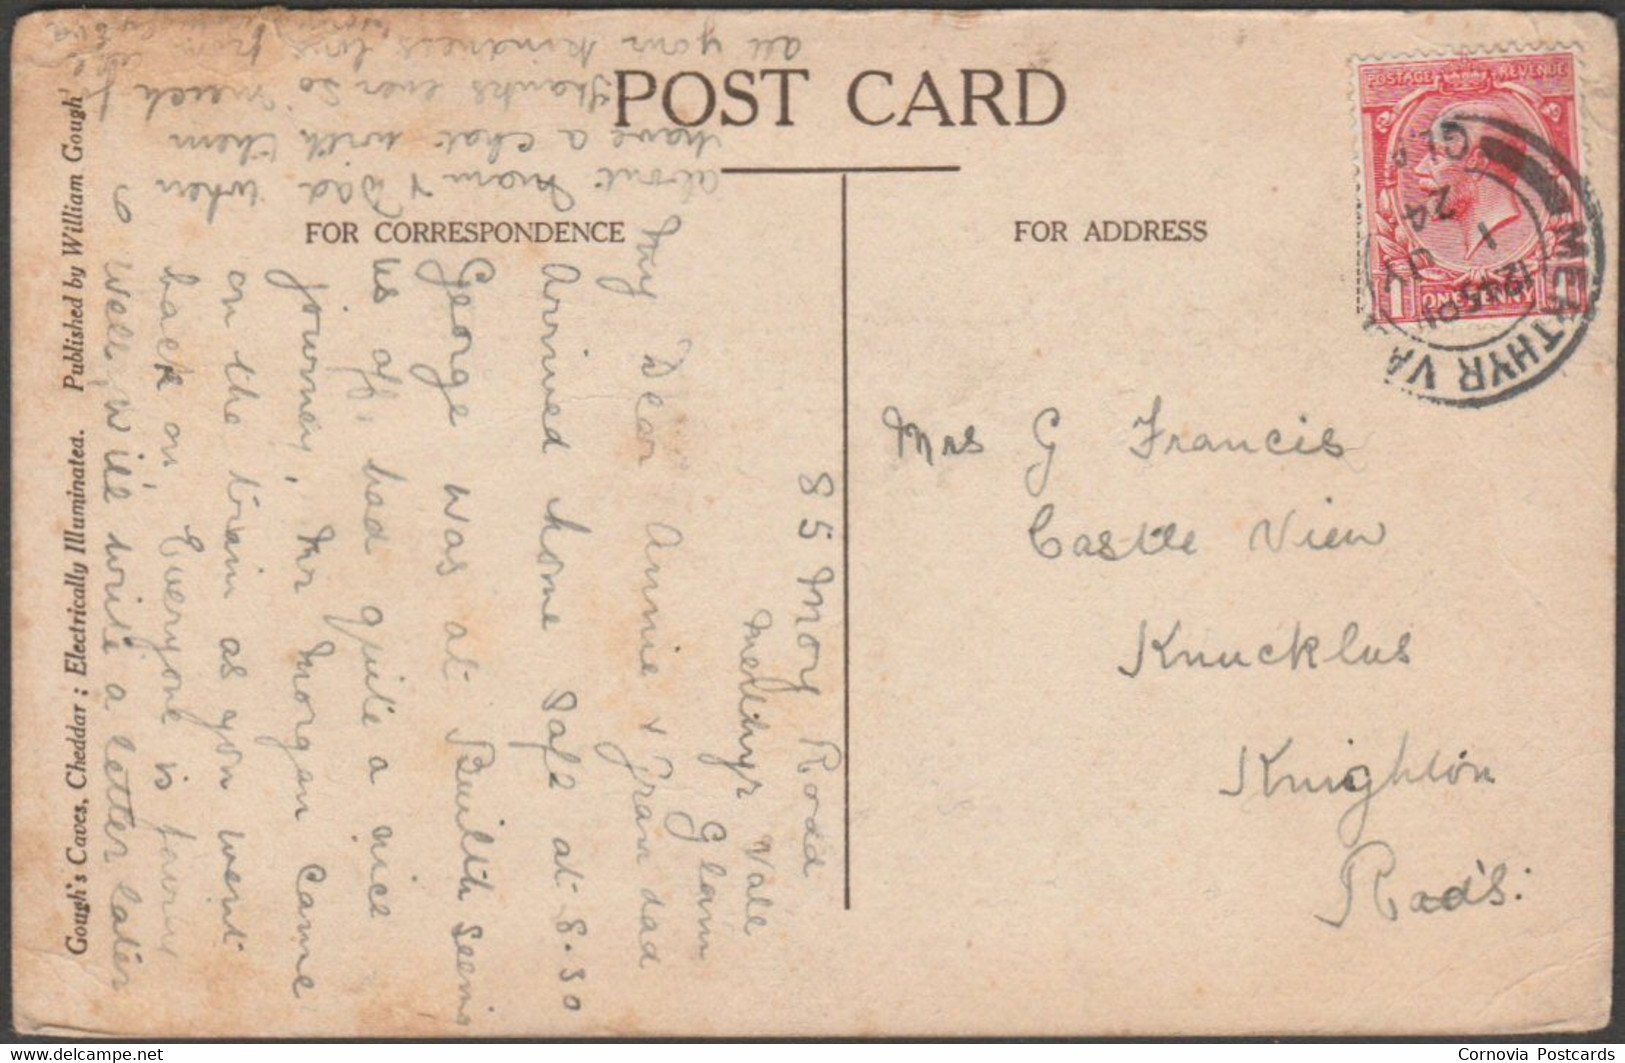 POST CARD
FOR CORRESPONDENCE
FOR ADDRESS
POSTAGE REVENUE
1 ONE PENNY 1
MERTHYR VA
1245PM
1 JY
24
GLA
Mrs G Francis
Castle View
Knucklus
Knighton
Rads:
85 Moy Road
Merthyr Vale
Glam
My Dear Annie & Gran dad
Arrived home safe at 8.30
George was at Builth Seems
us of, had quite a nice
journey, Mr Morgan came
on the train as you went
back on, Everyone is
well, will write a letter later
about Mam & Dad when
have a chat with them
Thanks ever so much for
all your kindness love from all
Gough's Caves, Cheddar; Electrically Illuminated. Published by William Gough
Cornovia Postcards
delcampe.net